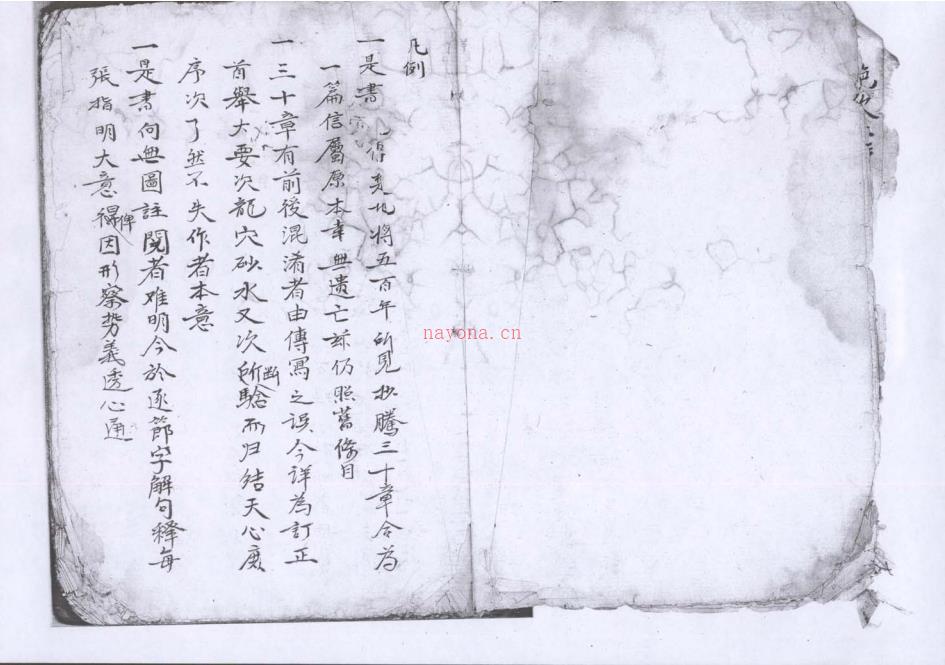 凡例
一是書 得 將五百年所見抄騰三十章合為
一篇信屬原本幸無遺亡茲仍照舊條目
一三十章有前後混淆者由傳寫之誤今詳為訂正
首舉大要次龍穴砂水又次所斷驗而归結天心庶
序次了然不失作者本意
一是書向無圖註閱者难明今於逐節字解句釋每
張指明大意俾得因形察势義透心通
nayona.cn